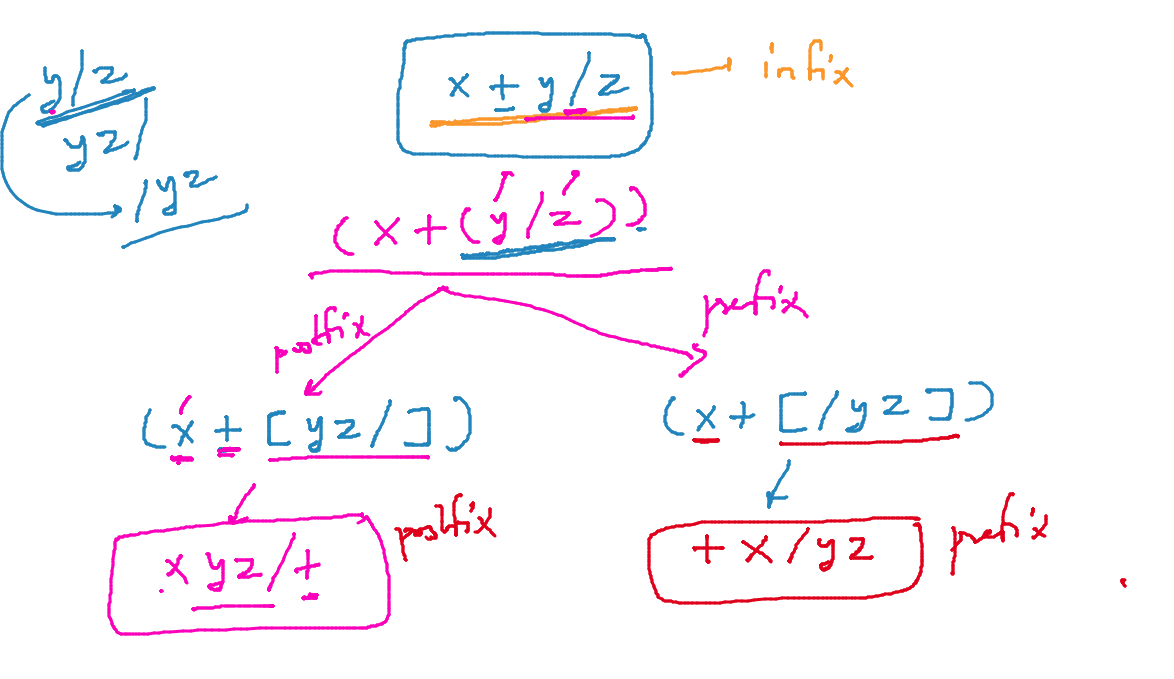 x + y/z
infix
y/z
yz/
/yz
(x+(y/z))
postfix
prefix
(x + [yz/])
(x+ [/yz])
x yz/+
postfix
+ x/yz
prefix